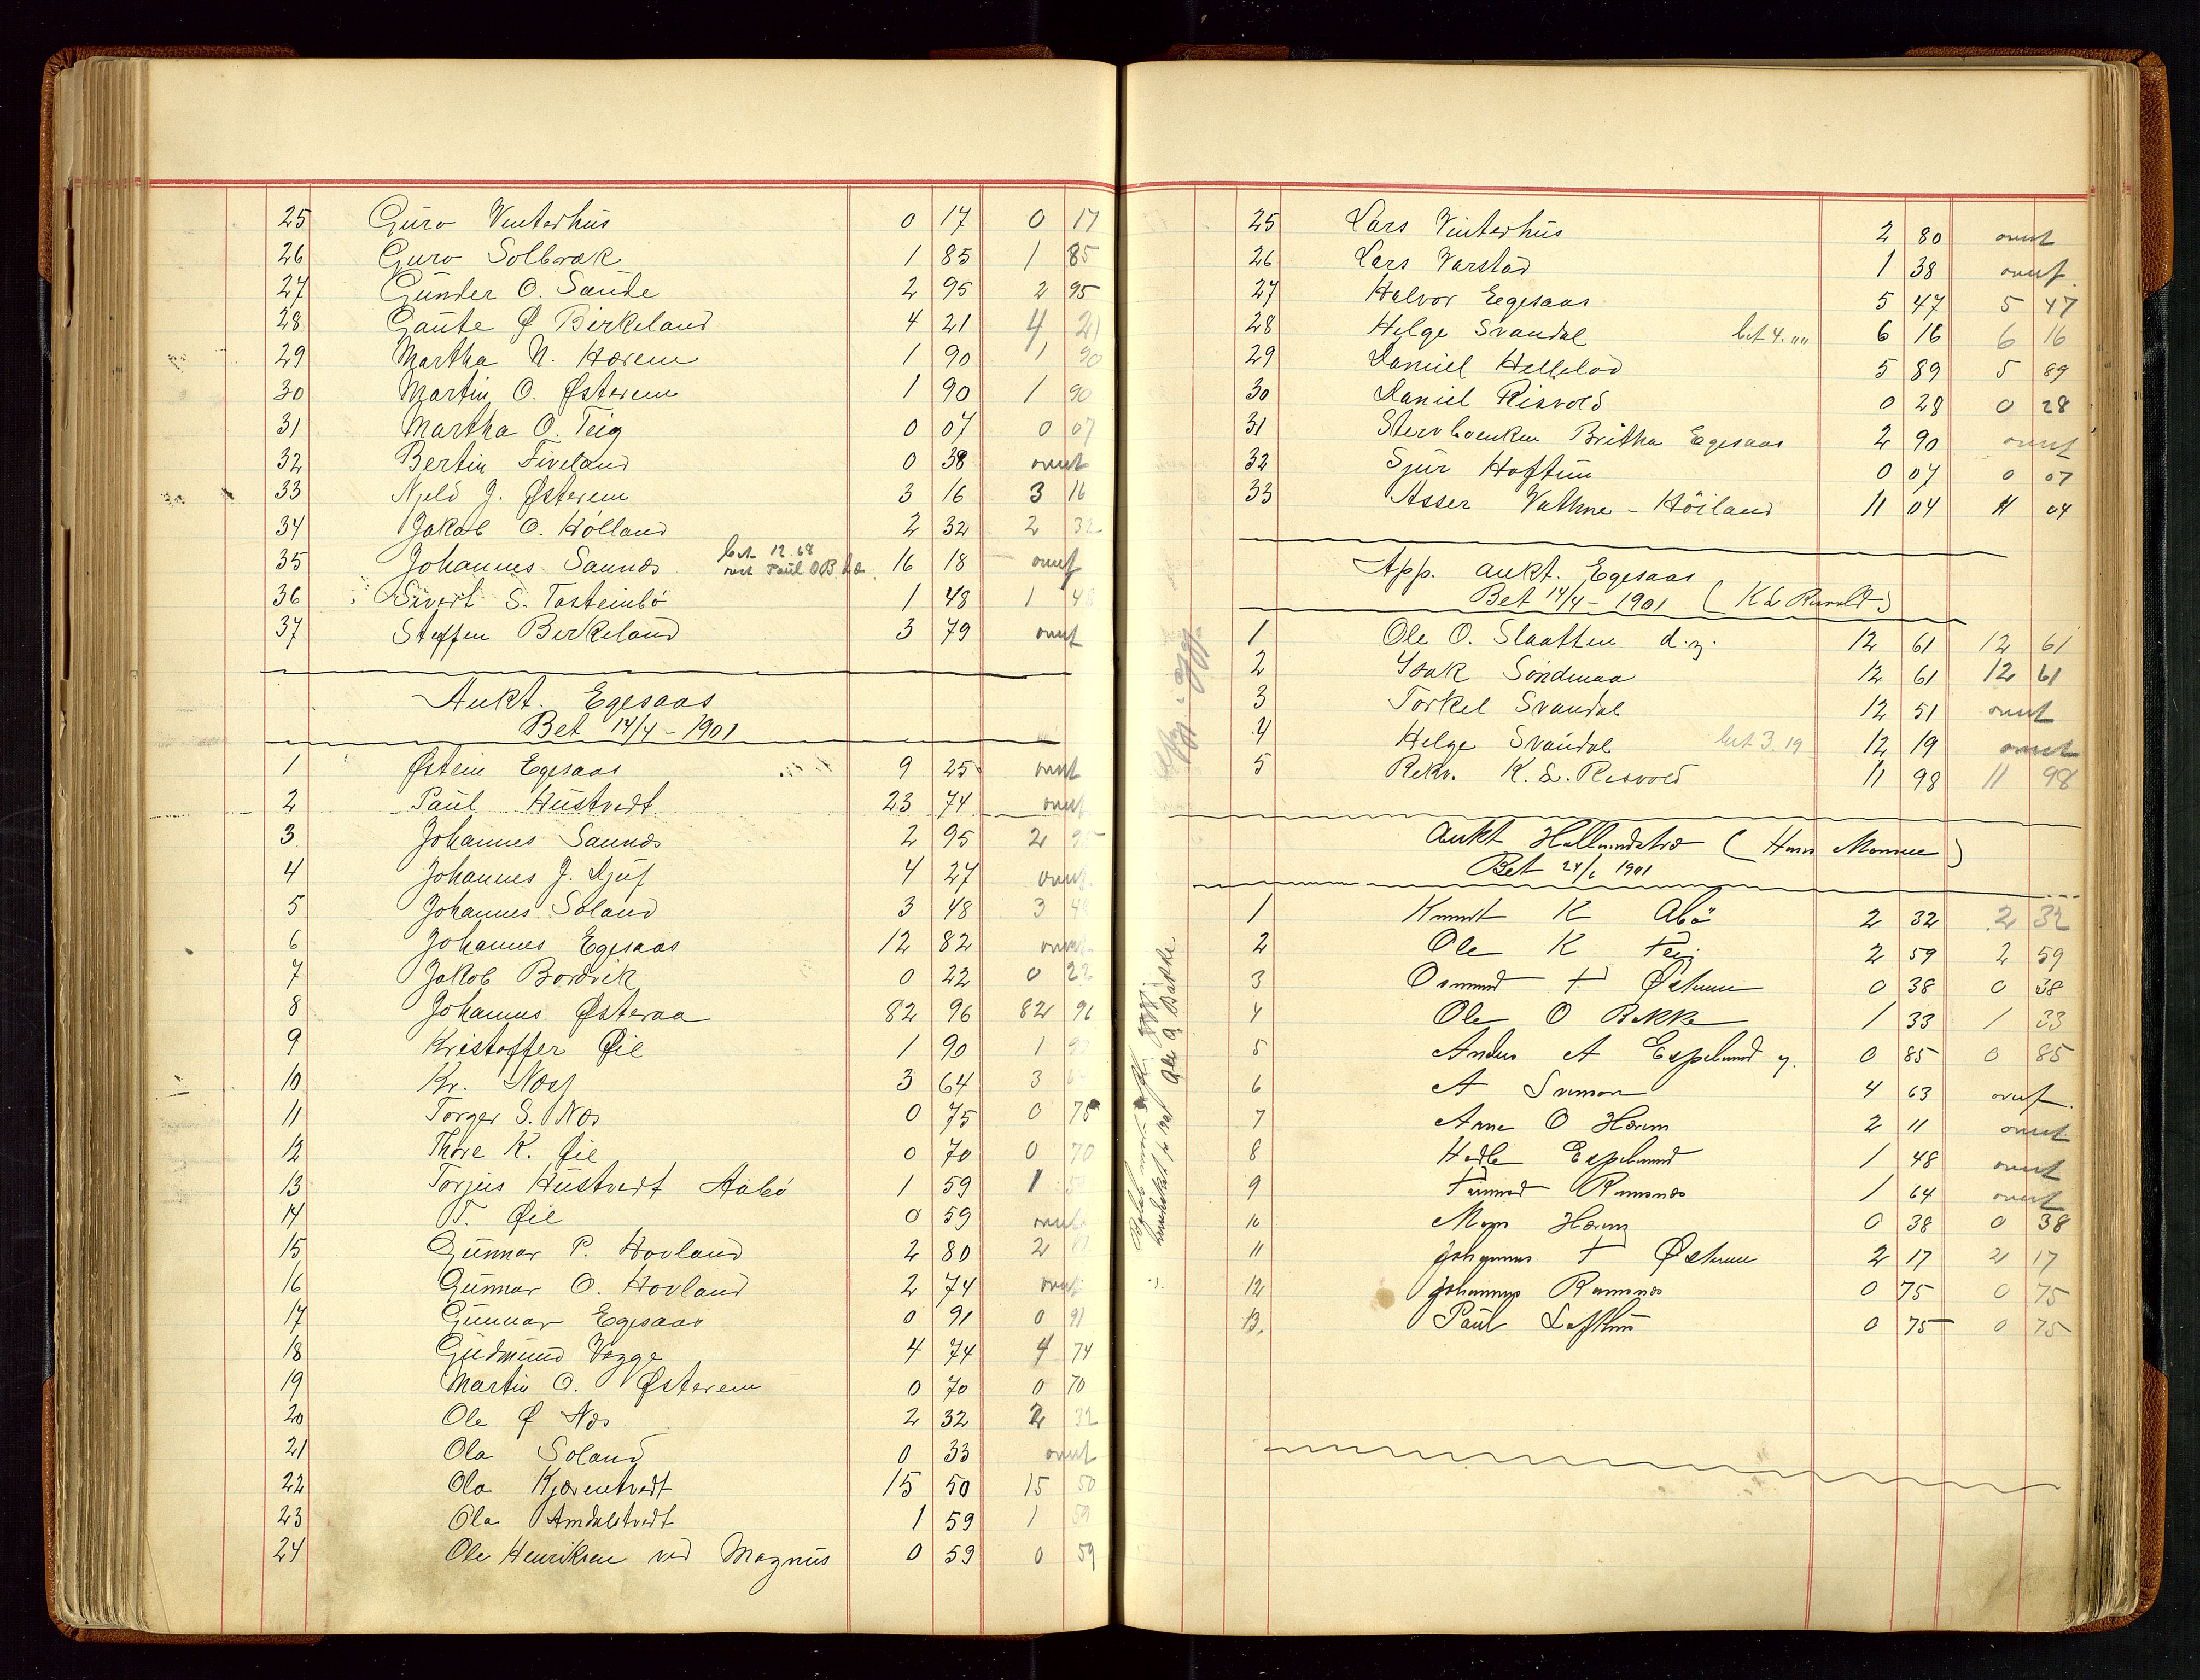 25 Guro Vinterhus 0 17 0 17
26 Guro Solbræk 1 85 1 85
27 Gunder O. Saude 2 95 2 95
28 Gaute Ø Birkeland 4 21 4 21
29 Martha N. Hærem 1 90 1 90
30 Martin O. Østerem 1 90 1 90
31 Martha O. Teig 0 07 0 07
32 Bertin Fiveland 0 38 omf
33 Njeld J. Østerem 3 16 3 16
34 Jakob O. Hølland 2 32 2 32
bet 12.68
35 Johannes Saunæs rest Paul O B 16 18 omf
36 Sivert S. Tasteinbö 1 48 1 48
37 Steffen Birkeland 3 79 omf
Aukt. Egesaas
Bet 14/4 - 1901
1 Østein Egesaas 9 25 omf
2 Paul Hustvedt 23 74 omf
3 Johannes Saunæs 2 95 2 95
4 Johannes J. Djuf 4 27 omf
5 Johannes Soland 3 48 3 48
6 Johannes Egesaas 12 82 omf
7 Jakob Bordvik 0 22 0 22
8 Johannes Østeraa 82 96 82 96
9 Kristoffer Øie 1 90 1 90
10 Kr. Næs 3 64 3 64
11 Torger S. Næs 0 75 0 75
12 Thore K. Øie 0 70 0 70
13 Torjus Hustvedt Aabö 1 59 1 5
14 T. Øie 0 59 omf
15 Gunnar P. Hovland 2 80 2 80
16 Gunnar O. Hovland 2 74 omf
17 Gunnar Egesaas 0 91 0 91
18 Gudmund Vegge 4 74 4 74
19 Martin O. Østerem 0 70 0 70
20 Ole Ø Næs 2 32 2 32
21 Ola Soland 0 33 omf
22 Ola Kjærentvedt 15 50 15 50
23 Ola Amdalstvedt 1 59 1 59
24 Ole Henriksen ved Magnus 0 59 0 59
25 Lars Vinterhus 2 80 omf
26 Lars Varstad 1 38 omf.
27 Halvor Egesaas 5 47 5 47
28 Helge Svandal bet 4. "" 6 16 6 16
29 Daniel Helleland 5 89 5 89
30 Daniel Risvold 0 28 0 28
31 Stervboenken Britha Egesaas 2 90 omf
32 Sjur Hoftun 0 07 0 07
33 Asser Vathne - Höiland 11 04 11 04
App. aukt. Egesaas
Bet 14/4 - 1901 (K L Risvold)
1 Ole O. Slaatten d.y. 12 61 12 61
2 Isak Söndenaa 12 61 12 61
3 Torkel Svandal 12 51 omf
4 Helge Svandal bet 3.19 12 19 omf
5 Rekv. K. L. Risvold 11 98 11 98
Aukt Hallandstræ (Hans Monsen)
Bet 24/6 1901
1 Knudt K Abö 2 32 2 32
2 Ole K Teig 2 59 2 59
3 Osmund T Østerem 0 38 0 38
4 Ole O Bakke 1 33 1 33
5 Anders A Espeland y. 0 85 0 85
6 A Svensen 4 63 omf.
7 Anne O Hærem 2 11 omf.
8 Hadle Espeland 1 48 omf
9 Ramsnæs 1 64 omf
10 Hærem 0 38 0 38
11 Johannes T Østerem 2 17 2 17
12 Johannes Ramsnæs 0 75 0 75
13. Paul Lofthus 0 75 0 75